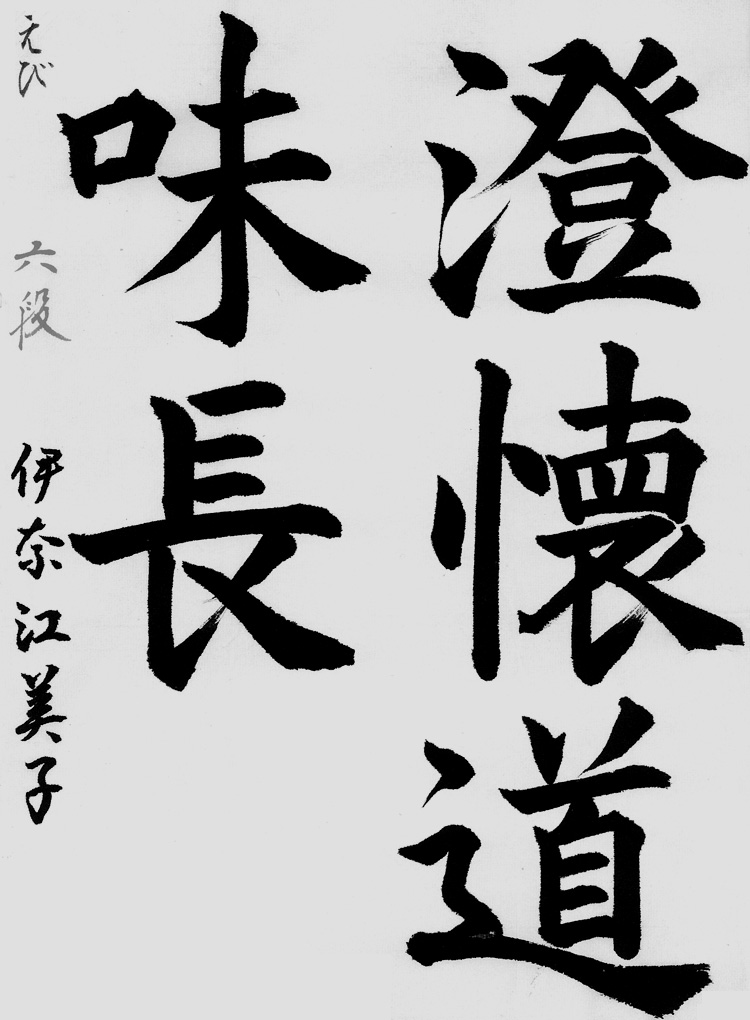 澄懐道
味長
えび 六段 伊奈江美子